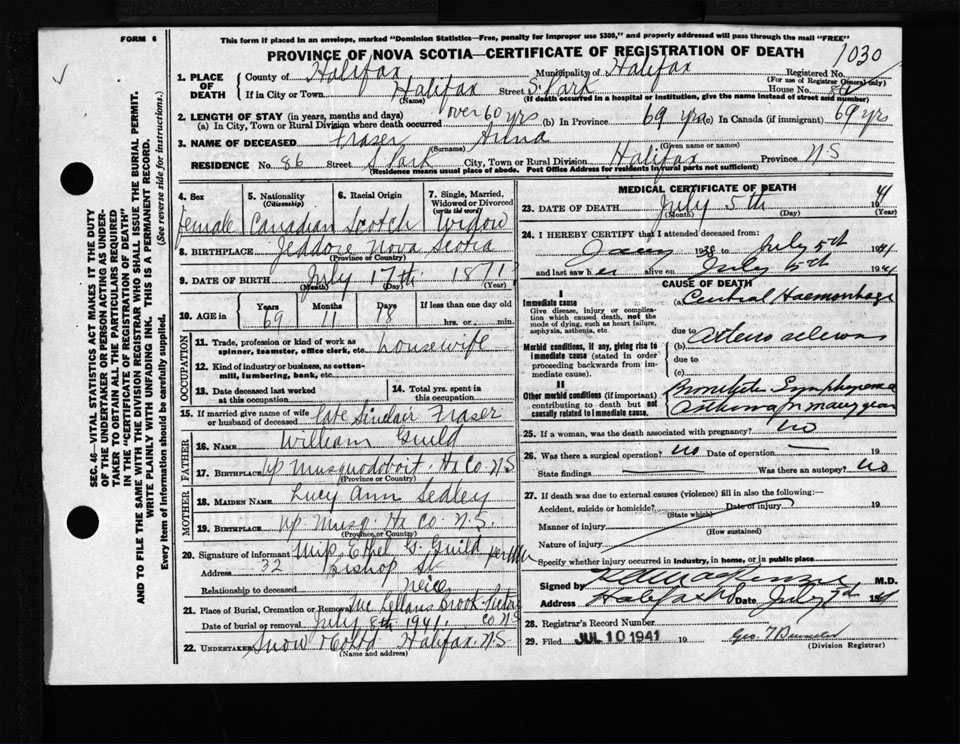 This form if placed in an envelope, marked "Dominion Statistics—Free, penalty for improper use $300," and properly addressed will pass through the mail "FREE"
FORM 6
PROVINCE OF NOVA SCOTIA—CERTIFICATE OF REGISTRATION OF DEATH
1030
1. PLACE OF DEATH
County of Halifax Municipality of Halifax Registered No.
(For use of Registrar General only)
If in City or Town Halifax Street S. Park House No. 86
(Name) (If death occurred in a hospital or institution, give the name instead of street and number)
2. LENGTH OF STAY (in years, months and days)
(a) In City, Town or Rural Division where death occurred over 60 yrs (b) In Province 69 yrs (c) In Canada (if immigrant) 69 yrs
3. NAME OF DECEASED Fraser Anna
(Surname) (Given name or names)
RESIDENCE No. 86 Street S Park City, Town or Rural Division Halifax Province N S
(Residence means usual place of abode. Post Office Address for residents in rural parts not sufficient)
4. Sex Female
5. Nationality (Citizenship) Canadian
6. Racial Origin Scotch
7. Single, Married, Widowed or Divorced (write the word) Widow
8. BIRTHPLACE Jeddore Nova Scotia
(Province or Country)
9. DATE OF BIRTH July 17th 1871
(Month) (Day) (Year)
10. AGE in Years Months Days If less than one day old
69 11 18 hrs. or min.
OCCUPATION
11. Trade, profession or kind of work as spinner, teamster, office clerk, etc. housewife
12. Kind of industry or business, as cotton-mill, lumbering, bank, etc.
13. Date deceased last worked at this occupation
14. Total yrs. spent in this occupation
15. If married give name of wife or husband of deceased late Sinclair Fraser
FATHER
16. NAME William Guild
17. BIRTHPLACE up Musquodoboit. Hx Co. N S
(Province or Country)
MOTHER
18. MAIDEN NAME Lucy Ann Sedley
19. BIRTHPLACE up. Musq. Hx Co. N. S.
(Province or Country)
20. Signature of informant Miss Ethel G. Guild
Address 32 Bishop St
Relationship to deceased neice
21. Place of Burial, Cremation or Removal Brook Pictou Co N S
Date of burial or removal July 8th 1941.
22. UNDERTAKER Snow & Co Ltd Halifax N S
(Name and address)
MEDICAL CERTIFICATE OF DEATH
23. DATE OF DEATH July 5th 1941
(Month) (Day) (Year)
24. I HEREBY CERTIFY that I attended deceased from:
Jany 1938 to July 5th 1941
and last saw her alive on July 5th 1941
CAUSE OF DEATH
I
Immediate cause
Give disease, injury or complication which caused death, not the mode of dying, such as heart failure, asphyxia, asthenia, etc.
(a) Haemorrhage
due to
Morbid conditions, if any, giving rise to immediate cause (stated in order proceeding backwards from immediate cause).
(b)
due to
(c)
II
Other morbid conditions (if important) contributing to death but not causally related to immediate cause.
Asthma for many years
25. If a woman, was the death associated with pregnancy? no
26. Was there a surgical operation? no Date of operation — 19
State findings Was there an autopsy? no
27. If death was due to external causes (violence) fill in also the following:—
Accident, suicide or homicide? Date of injury 19
(State which)
Manner of injury
(How sustained)
Nature of injury
Specify whether injury occurred in industry, in home, or in public place
Signed by M.D.
Address Halifax N.S. Date July 7th 1941
28. Registrar's Record Number
29. Filed JUL 10 1941 19
(Division Registrar)
SEC. 46—VITAL STATISTICS ACT MAKES IT THE DUTY
OF THE UNDERTAKER OR PERSON ACTING AS UNDERTAKER TO OBTAIN ALL THE PARTICULARS REQUIRED
IN THE "CERTIFICATE OF REGISTRATION OF DEATH"
AND TO FILE THE SAME WITH THE DIVISION REGISTRAR WHO SHALL ISSUE THE BURIAL PERMIT.
WRITE PLAINLY WITH UNFADING INK. THIS IS A PERMANENT RECORD.
Every item of information should be carefully supplied. (See reverse side for instructions.)